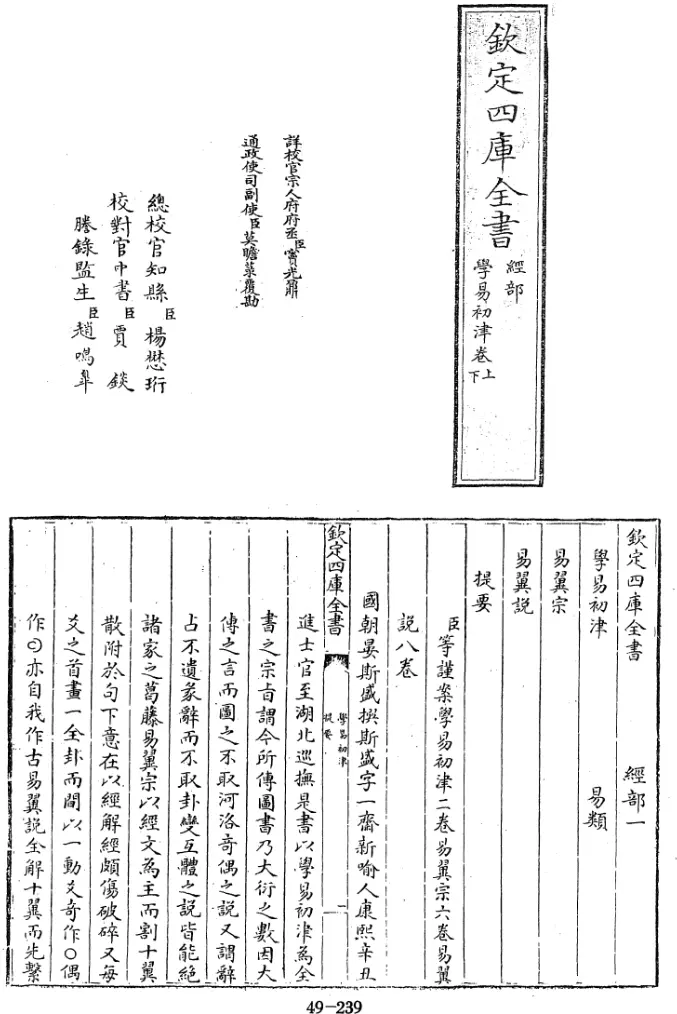 欽定四庫全書
經部
學易初津卷上
下
詳校官宗人府府丞臣竇光鼐
通政使司副使臣莫瞻菉覆勘
總校官知縣臣楊懋珩
校對官中書臣賈鍈
謄錄監生臣趙鳴臯
欽定四庫全書 經部一
學易初津 易類
易翼宗
易翼說
提要
臣等謹案學易初津二卷易翼宗六卷易翼
說八卷
國朝晏斯盛撰斯盛字一齋新喻人康熙辛丑
欽定四庫全書
學易初津
提要
一
進士官至湖北巡撫是書以學易初津為全
書之宗旨謂今所傳圖書乃大衍之數因大
傳之言而圖之不取河洛奇偶之說又謂辭
占不遺象辭而不取卦變互體之說皆能絶
諸家之葛藤易翼宗以經文為主而割十翼
散附於句下意在以經解經頗傷破碎又每
爻之首畫一全卦而間以一動爻奇作〇偶
作亦自我作古易翼說全解十翼而先繫
49-239